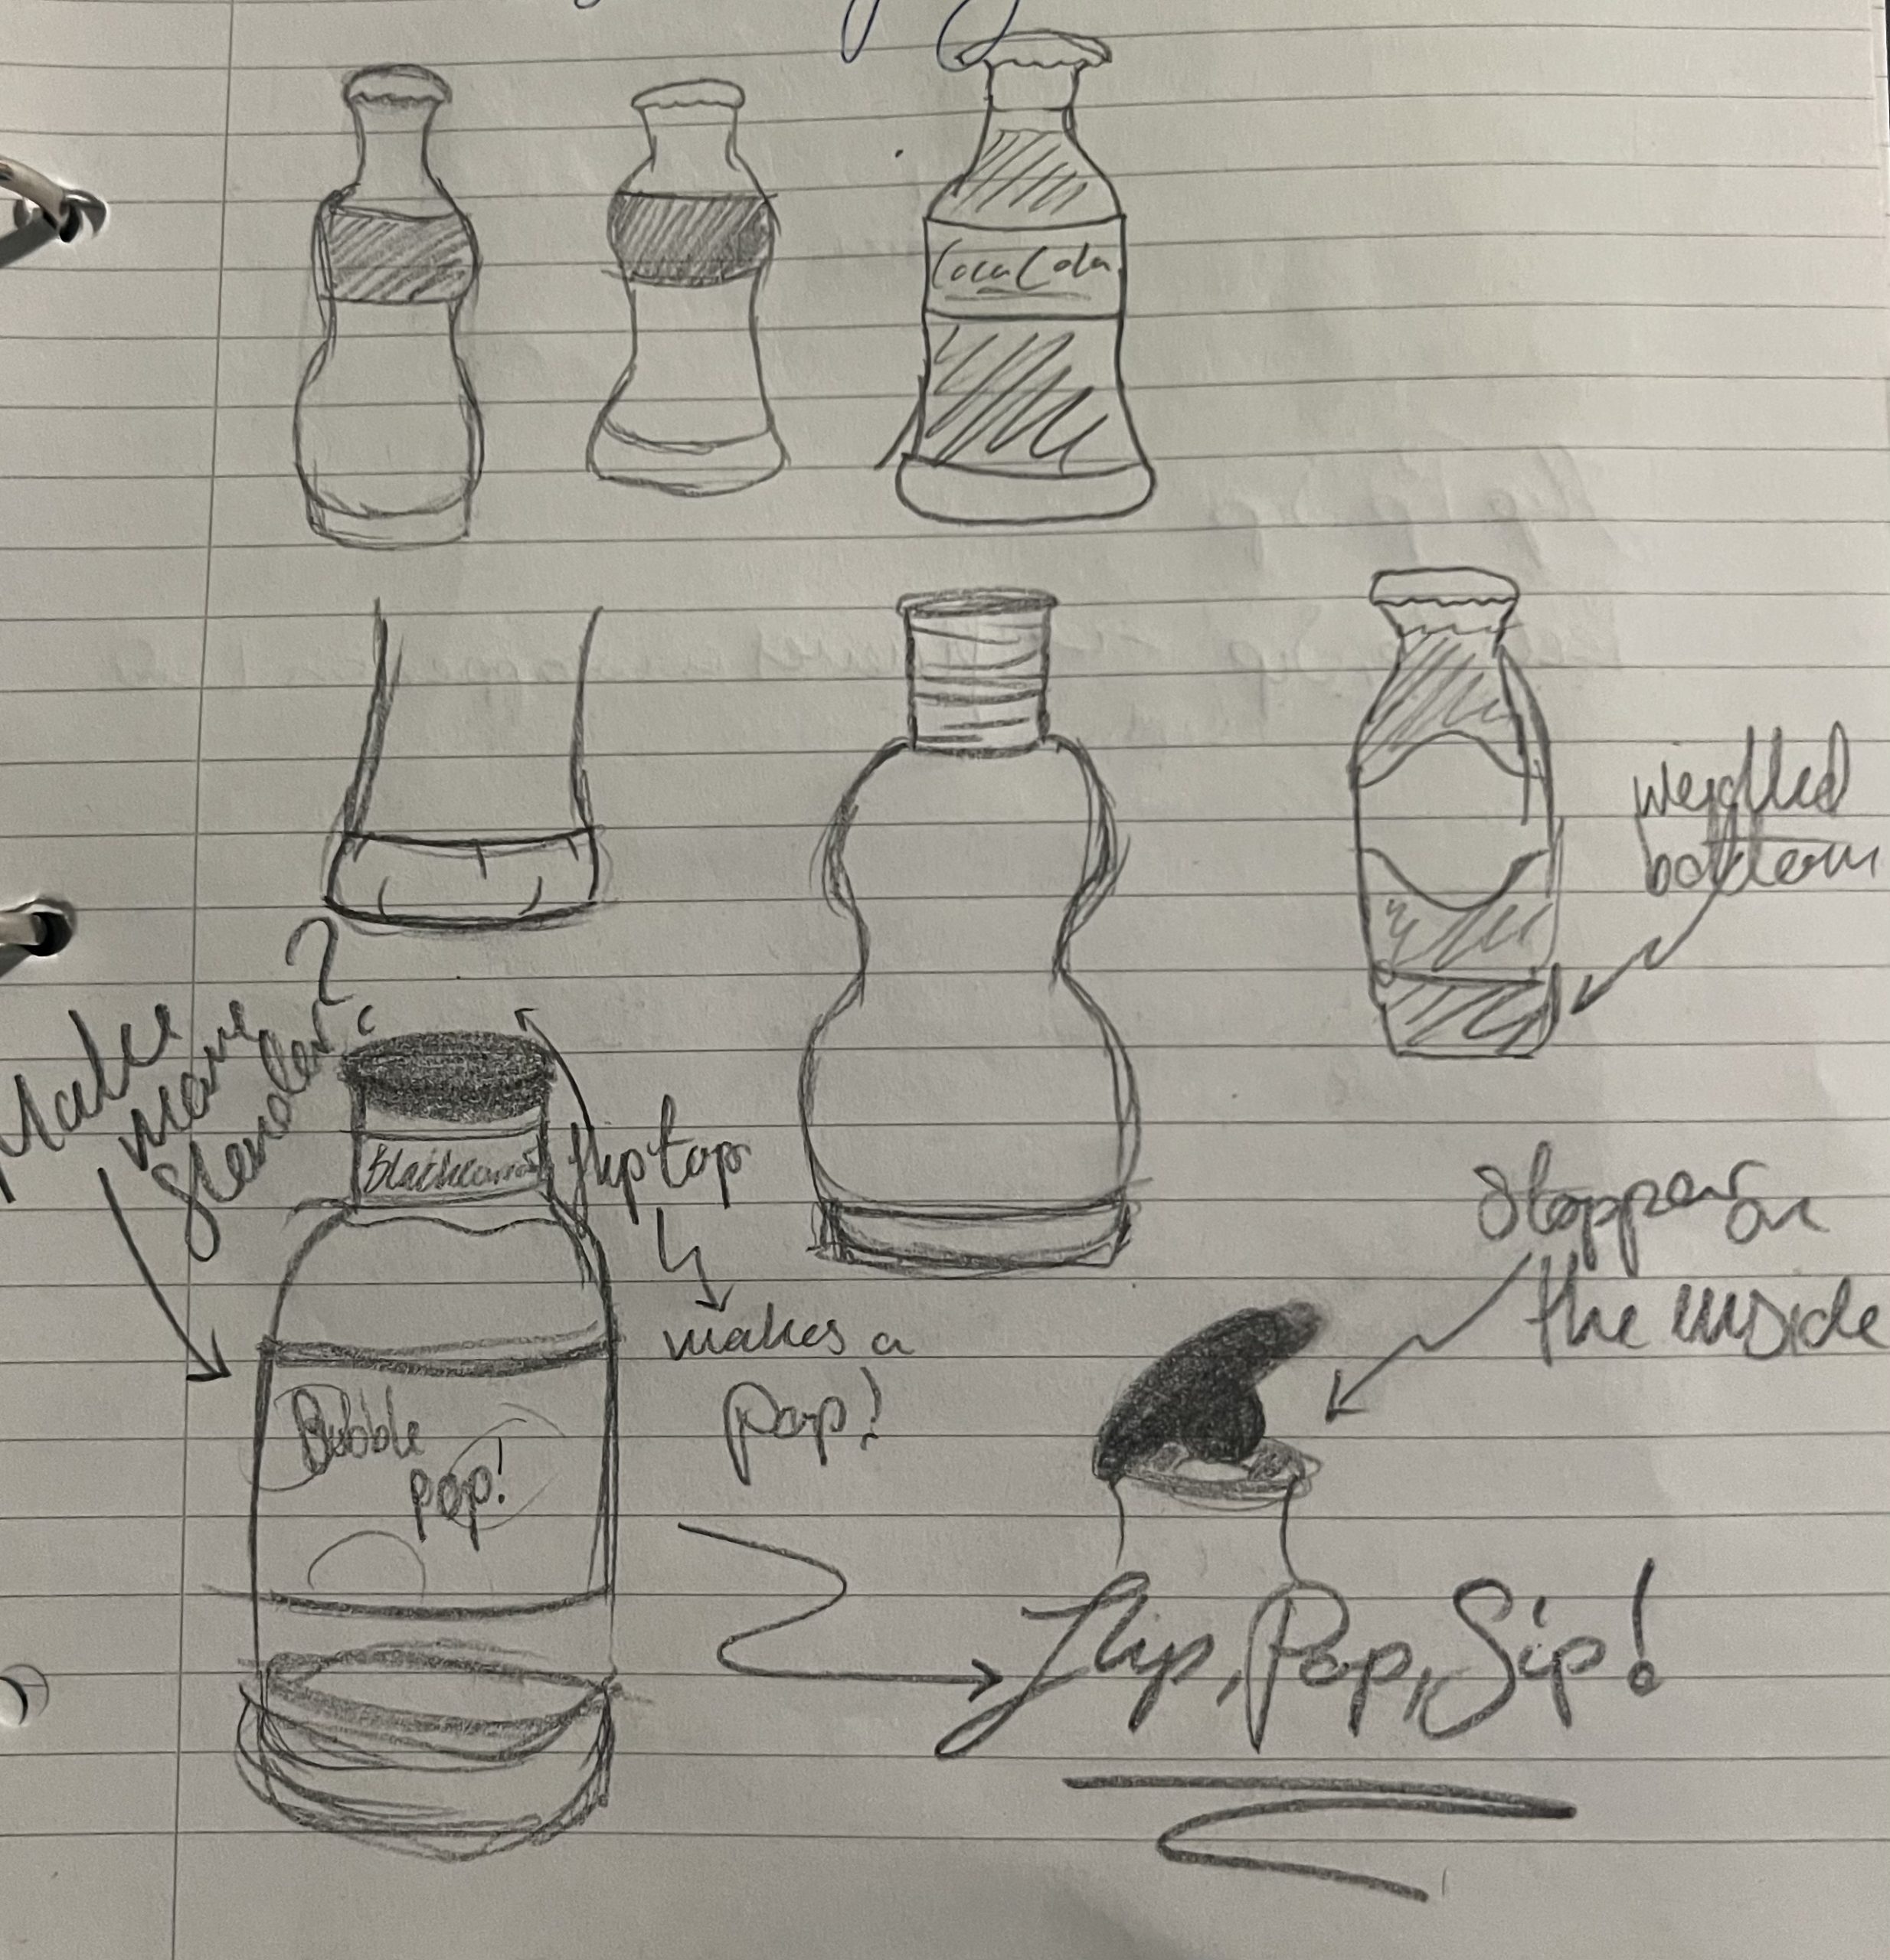 Coca Cola
weighted
bottom
Make
more
slender?
flip top
makes a
pop!
Bubble
pop!
Stopper on
the inside
Flip, Pop, Sip!